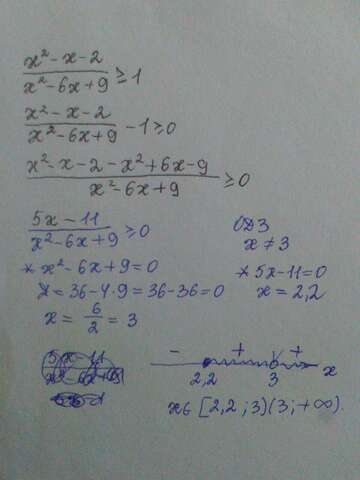 x² - x - 2 / x² - 6x + 9 ≥ 1
x² - x - 2 / x² - 6x + 9 - 1 ≥ 0
x² - x - 2 - x² + 6x - 9 / x² - 6x + 9 ≥ 0
5x - 11 / x² - 6x + 9 ≥ 0
ОДЗ
x ≠ 3
* x² - 6x + 9 = 0
* 5x - 11 = 0
D = 36 - 4·9 = 36 - 36 = 0
x = 2,2
x = 6/2 = 3
- + +
2,2 3 x
x ∈ [2,2 ; 3)(3 ; +∞).